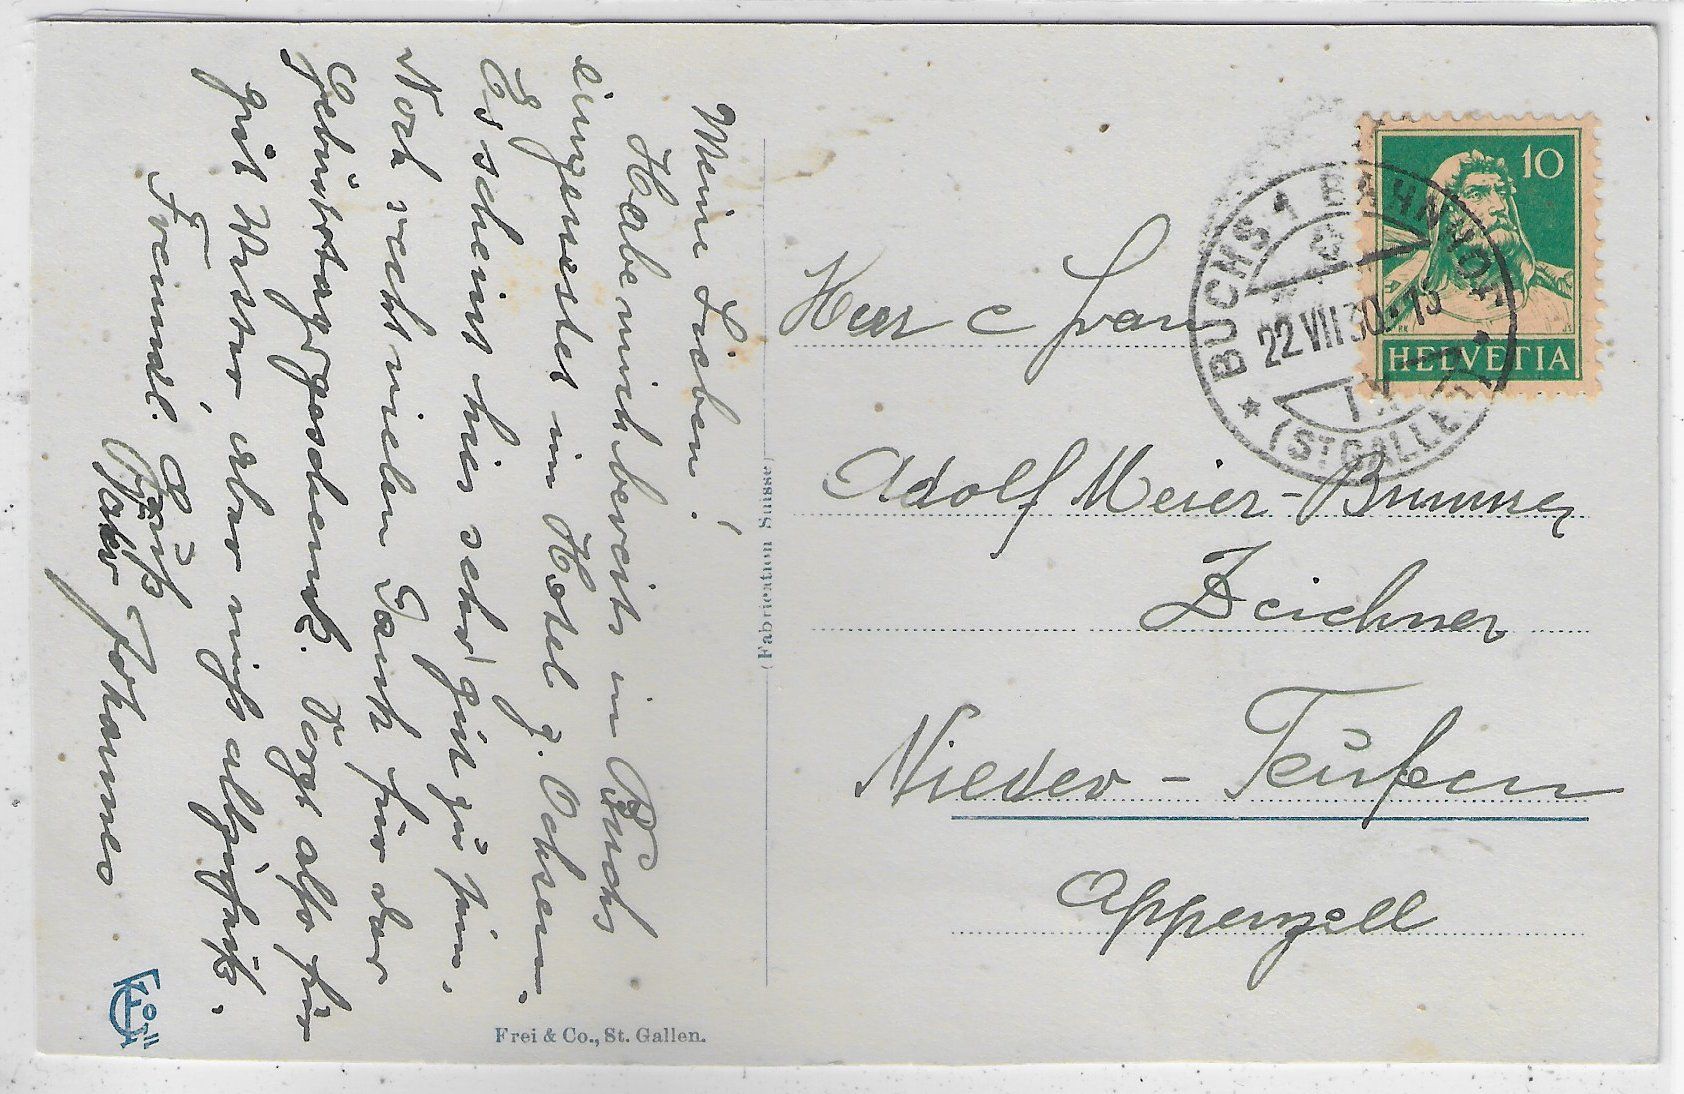 Meine Lieben!
Habe mich bereits in Buchs
eingenestet im Hotel z. Ochsen.
Es scheint hier sehr gut zu sein.
Noch recht vielen Dank für das
Geburtstagsgeschenk. Sorgt also für
gut Wetter, aber nicht
Freimal. Gruß
Johannes
Frei & Co., St. Gallen.
(Fabrication Suisse)
10
HELVETIA
BUCHS 1 BAHNHOF
22 VII 30
(ST GALLEN)
Herr & Frau
Adolf Meier-Brunner
Zeichner
Nieder-Teufen
Appenzell